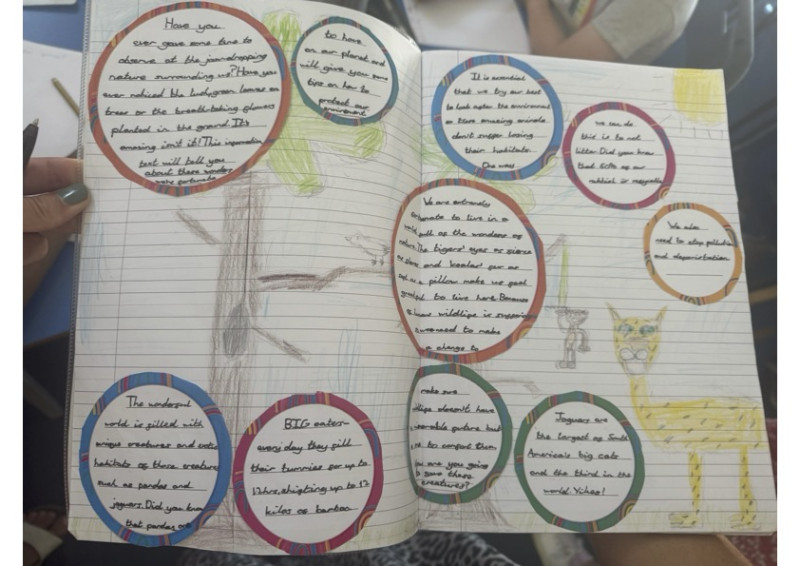 Have you
ever gave some time to
observe at the jawdropping
nature surrounding us? Have you
ever noticed the lush, green leaves on
trees or the breathtaking flowers
planted in the ground. It's
amazing isn't it! This information
text will tell you
about these wonders
were fortunate
to have
on our planet and
will give you some
tips on how to
protect our
enviroment
The wonderful
world is filled with
unique creatures and exotic
habitats of those creatures
such as pandas and
jaguars. Did you know
that pandas are
BIG eaters-
every day they fill
their tummies for up to
12hrs, shifting up to 12
kilos of bamboo
It is essential
that we try our best
to look after the enviroment
so these amazing animals
don't suffer losing
their habitats.
One way
we can do
this is to not
litter. Did you know
that of our
rubbish is
We also
need to stop
and deforistation
We are extremely
to live in a
world full of the wonders of
nature. The tigers' eyes as fierce
as and koalas' fur as
a pillow make us feel
grateful to live here. Because
wildlife is
need to make
a change to
make sure
doesn't have
future but
one to comfort them.
How are you going
to save these
creatures?
Jaguars are
the largest of South
America's big cats
and the third in the
world. Yikes!